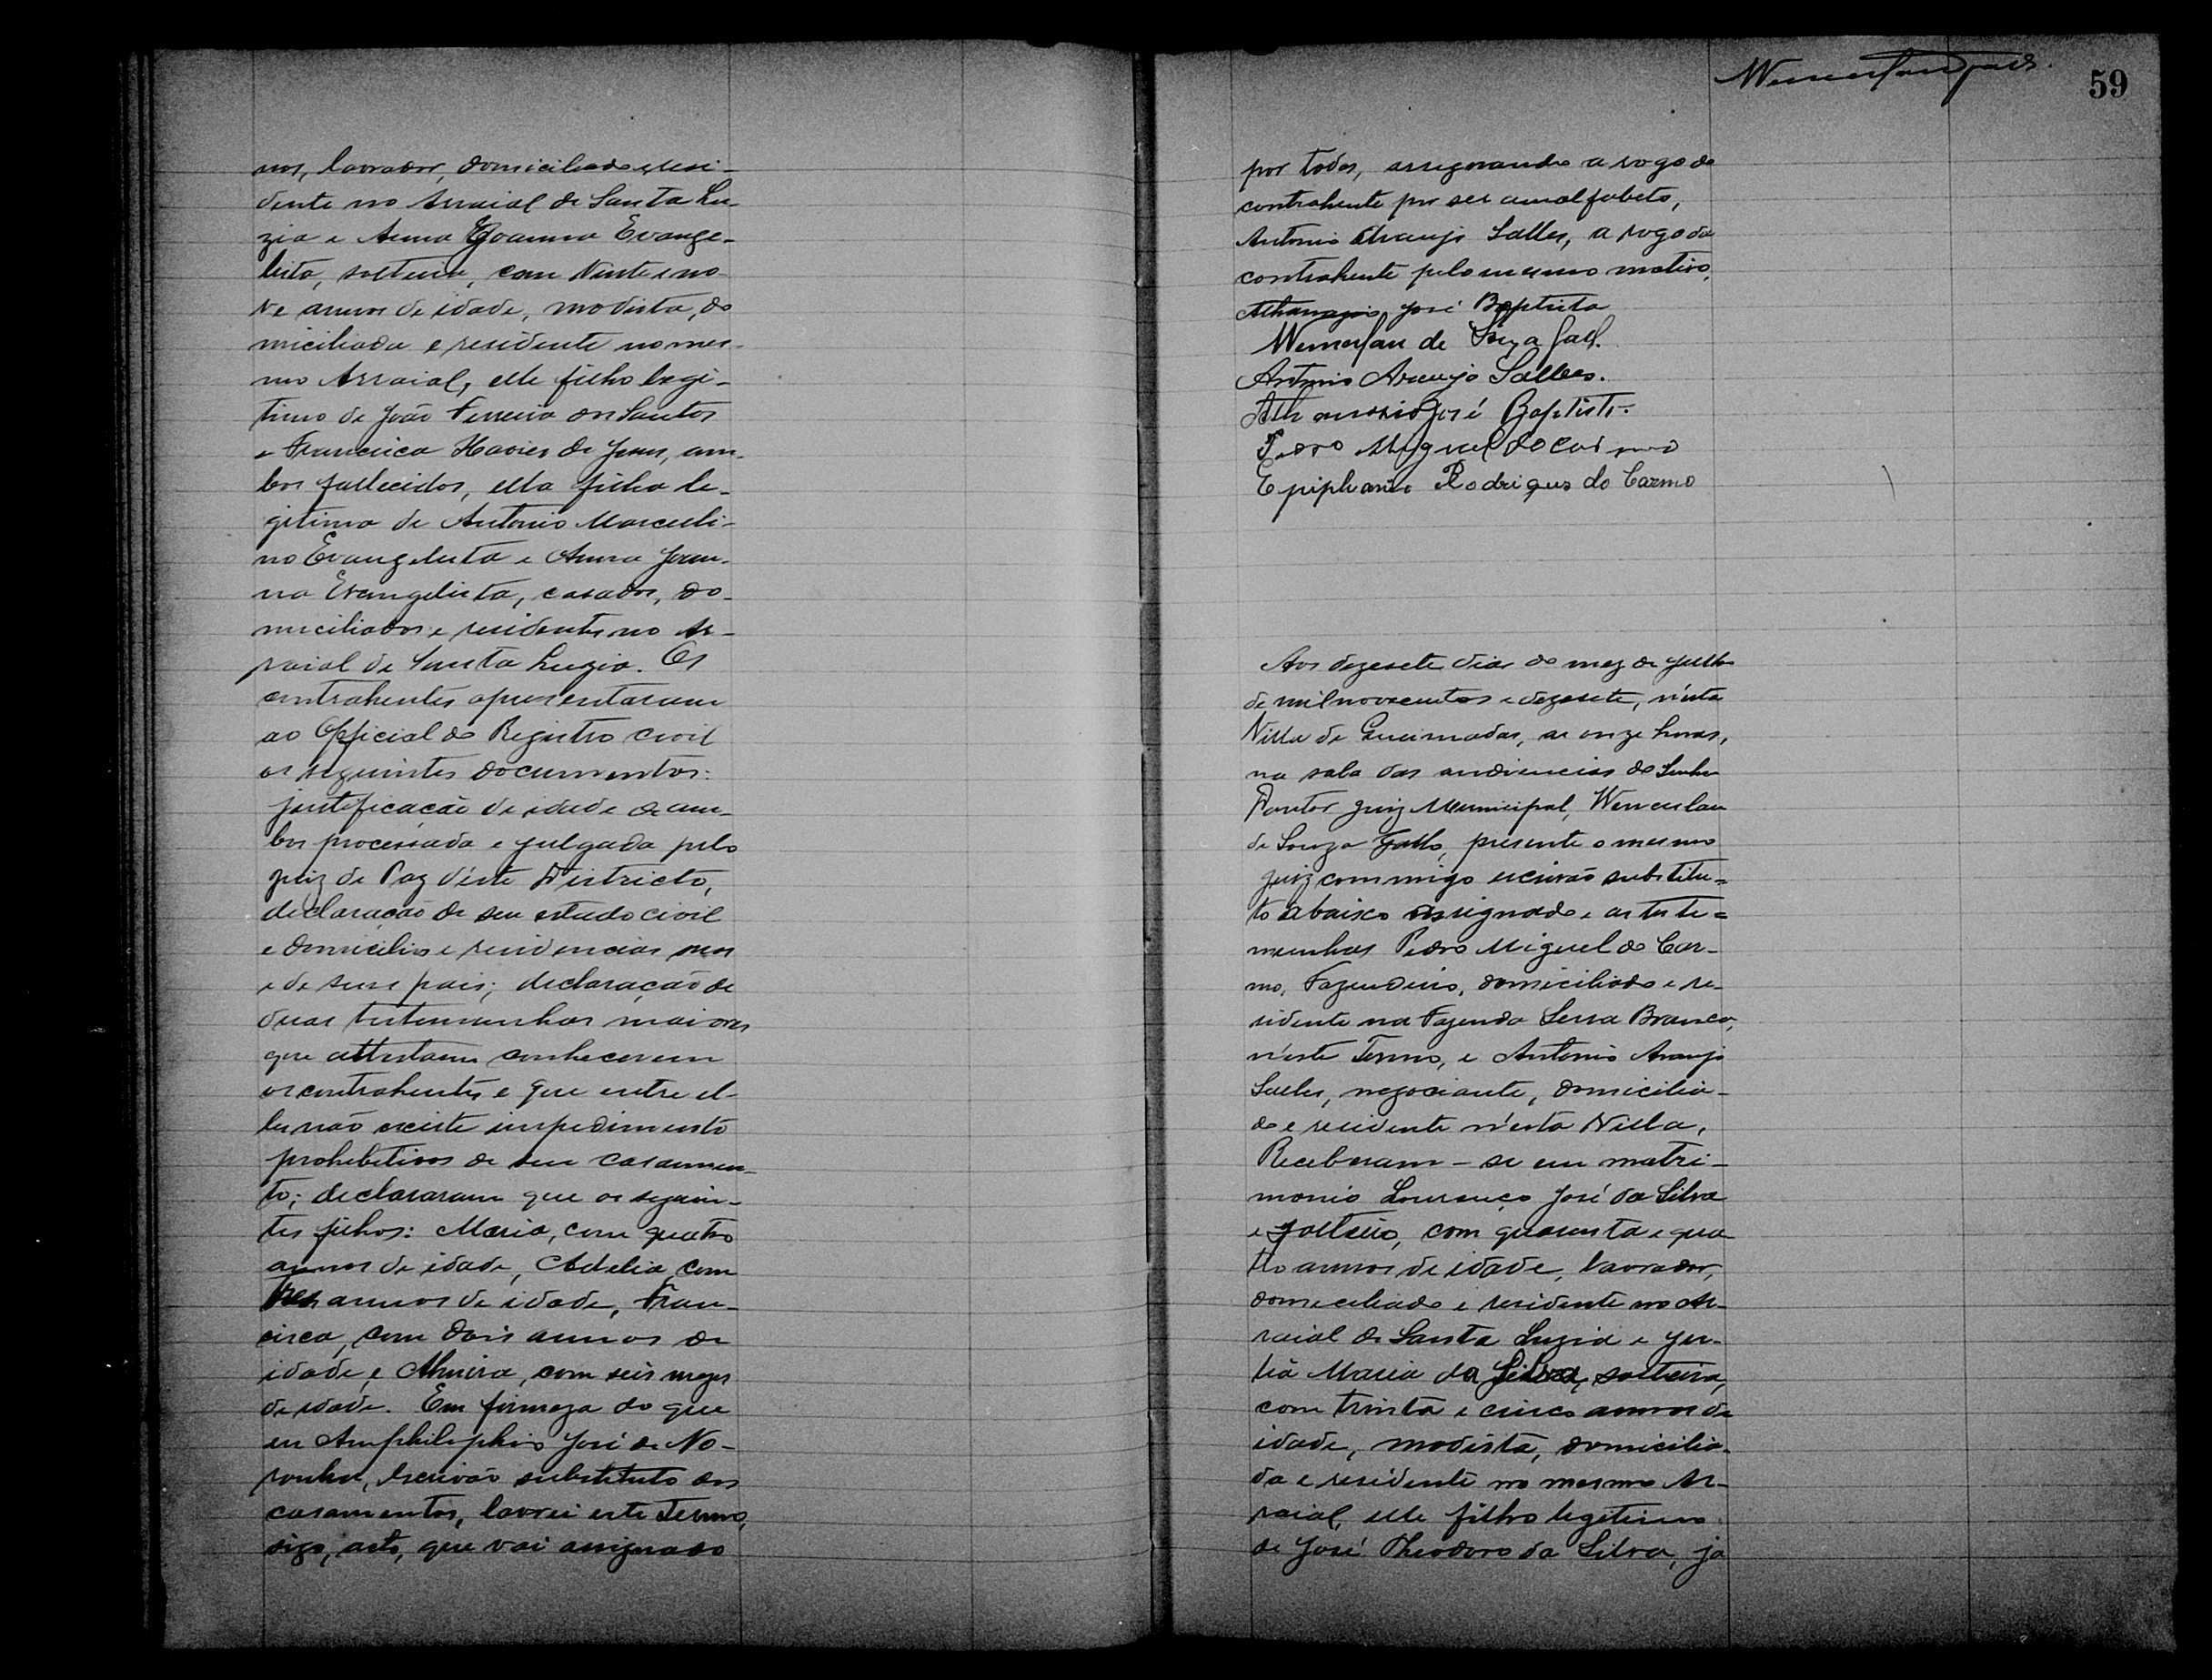 nos, lavrador, domiciliado e resi-
dente no Arraial de Santa Lu-
zia e Anna Joanna Evange-
lista, solteira, com vinte e no
ve annos de idade, modista, do
miciliada e residente no mes-
mo Arraial, elle filho legi-
timo de João Ferreira dos Santos
e Francisca Xavier de Jesus, am-
bos fallecidos, ella filha le-
gitima de Antonio Marculi-
no Evangelista e Anna Joan-
na Evangelista, casados, do-
miciliados e residentes no Ar-
raial de Santa Luzia. Os
contrahentes apresentaram
ao Official do Registro civil
os seguintes documentos:
justificação de idade de am-
bos processada e julgada pelo
juiz de Paz d'este Districto,
declaração de seu estado civil
e domicilio e residencias seus
e de seus pais; declaração de
duas testemunhas maiores
que attestam conhecerem
os contrahentes e que entre el-
les não existe impedimento
prohebitivos de seu casamen-
to; declararam que os seguin-
tes filhos: Maria, com quatro
annos de idade, Adelia, com
tres annos de idade, Fran-
cisca, com dois annos de
idade, e Almira, com seis mezes
de idade. Em firmeza do que
eu Amphilophio José de No-
ronha, Escrivão substituto dos
casamentos, lavrei este Termo,
digo, acto, que vai assignado
59
por todos, assignando a rogo do
contrahente por ser analfabeto,
Antonio Araujo Salles, a rogo da
contrahente pelo mesmo motivo,
Athanazio José Baptista
Wenceslau de Souza Gall.
Antonio Araujo Salles.
Athanasio José Baptista.
Pedro Miguel do Carmo
Epiphanio Rodrigues do Carmo
Aos dezesete dias do mez de Julho
de mil novecentos e dezesete, n'esta
Villa de Queimadas, as onze horas,
na sala das audiencias do Senhor
Doutor Juiz Municipal, Wenceslau
de Souza Gallo, presente o mesmo
juiz commigo escrivão substitu-
to abaixo assignado e as teste-
munhas Pedro Miguel do Car-
mo, Fazendeiro, domiciliado e re-
sidente na Fazenda Serra Branca,
n'este Termo, e Antonio Araujo
Salles, negociante, domicilia-
do e residente n'esta Villa,
Receberam-se em matri-
monio Lourenço José da Silva
e solteiro, com quarenta e qua
tro annos de idade, lavrador,
domeciliado e residente no Ar-
raial de Santa Luzia e Ju-
lia Maria da Silva, solteira,
com trinta e cinco annos de
idade, modista, domicilia-
da e residente no mesmo Ar-
raial, elle filho legitimo
de José Theodoro da Silva, ja